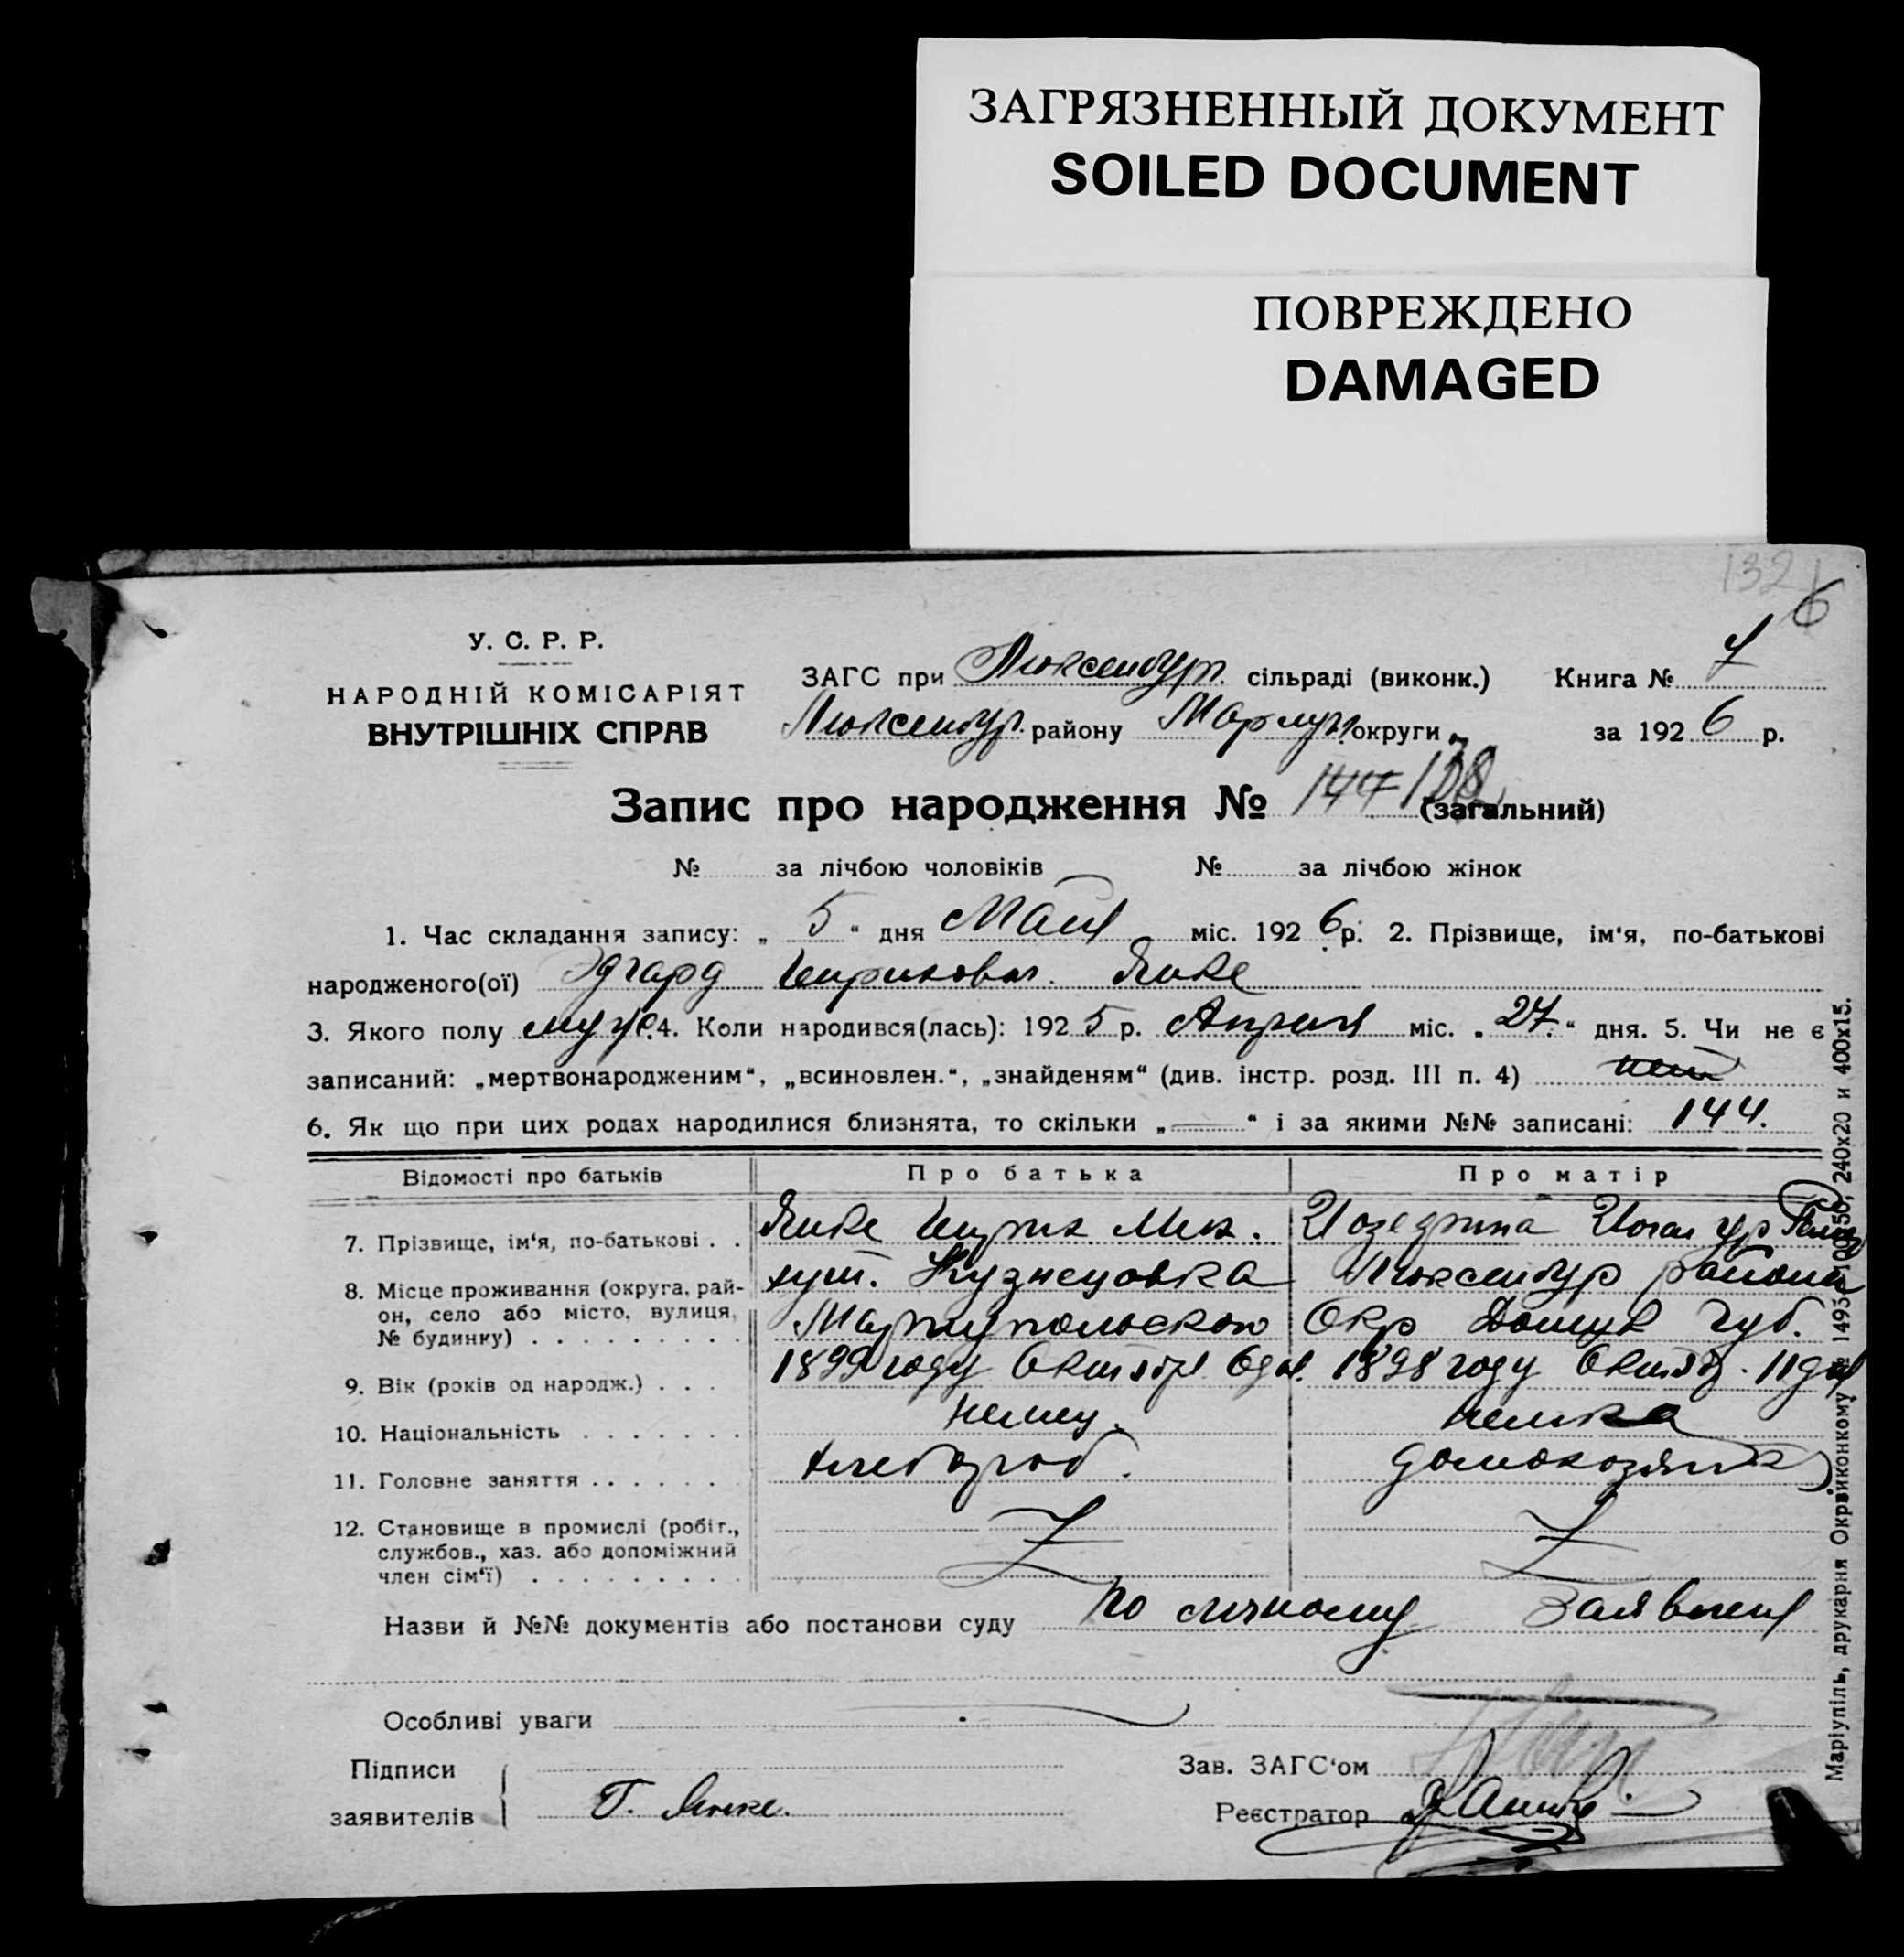 ЗАГРЯЗНЕННЫЙ ДОКУМЕНТ
SOILED DOCUMENT
ПОВРЕЖДЕНО
DAMAGED
132
6
У. С. Р. Р.
НАРОДНІЙ КОМІСАРІЯТ
ВНУТРІШНІХ СПРАВ
ЗАГС при Люксембург. сільраді (виконк.) Книга №
Люксембур. району Мариуп. округи за 1926 р.
Запис про народження № 144 138 (загальний)
№ за лічбою чоловіків № за лічбою жінок
1. Час складання запису: „ 5 “ дня Мая міс. 1926 р. 2. Прізвище, ім‘я, по-батькові
народженого(ої) Эдгард Генрихович. Янке
3. Якого полу муж. 4. Коли народився(лась): 1925 р. Апреля міс. „ 27. “ дня. 5. Чи не є
записаний: „мертвонародженим“, „всиновлен.“, „знайденям“ (див. інстр. розд. III п. 4) нет
6. Як що при цих родах народилися близнята, то скільки „ — “ і за якими №№ записані: 144.
Відомості про батьків Про батька Про матір
7. Прізвище, ім‘я, по-батькові . . Янке Генрих Мих. Иозефина Иоган ур
8. Місце проживання (округа, рай-
он, село або місто, вулиця,
№ будинку) . . . . . . . . .
хут. Кузнецовка Люксембур района
Мариупольского Окр Донецк губ.
9. Вік (років од народж.) . . . 1899 году Октября 6 дня. 1898 году Октяб. 11 дня
10. Національність . . . . . . . немец. немка
11. Головне заняття . . . . . . хлебороб. домохозяйка
12. Становище в промислі (робіт.,
службов., хаз. або допоміжний
член сім‘ї) . . . . . . . . .
Назви й №№ документів або постанови суду по личному заявлению
Особливі уваги
Підписи
заявителів
Г. Янке.
Зав. ЗАГС‘ом
Реєстратор
Маріупіль, друкарня Окрвиконкому № 1493 240x20 и 400x15.